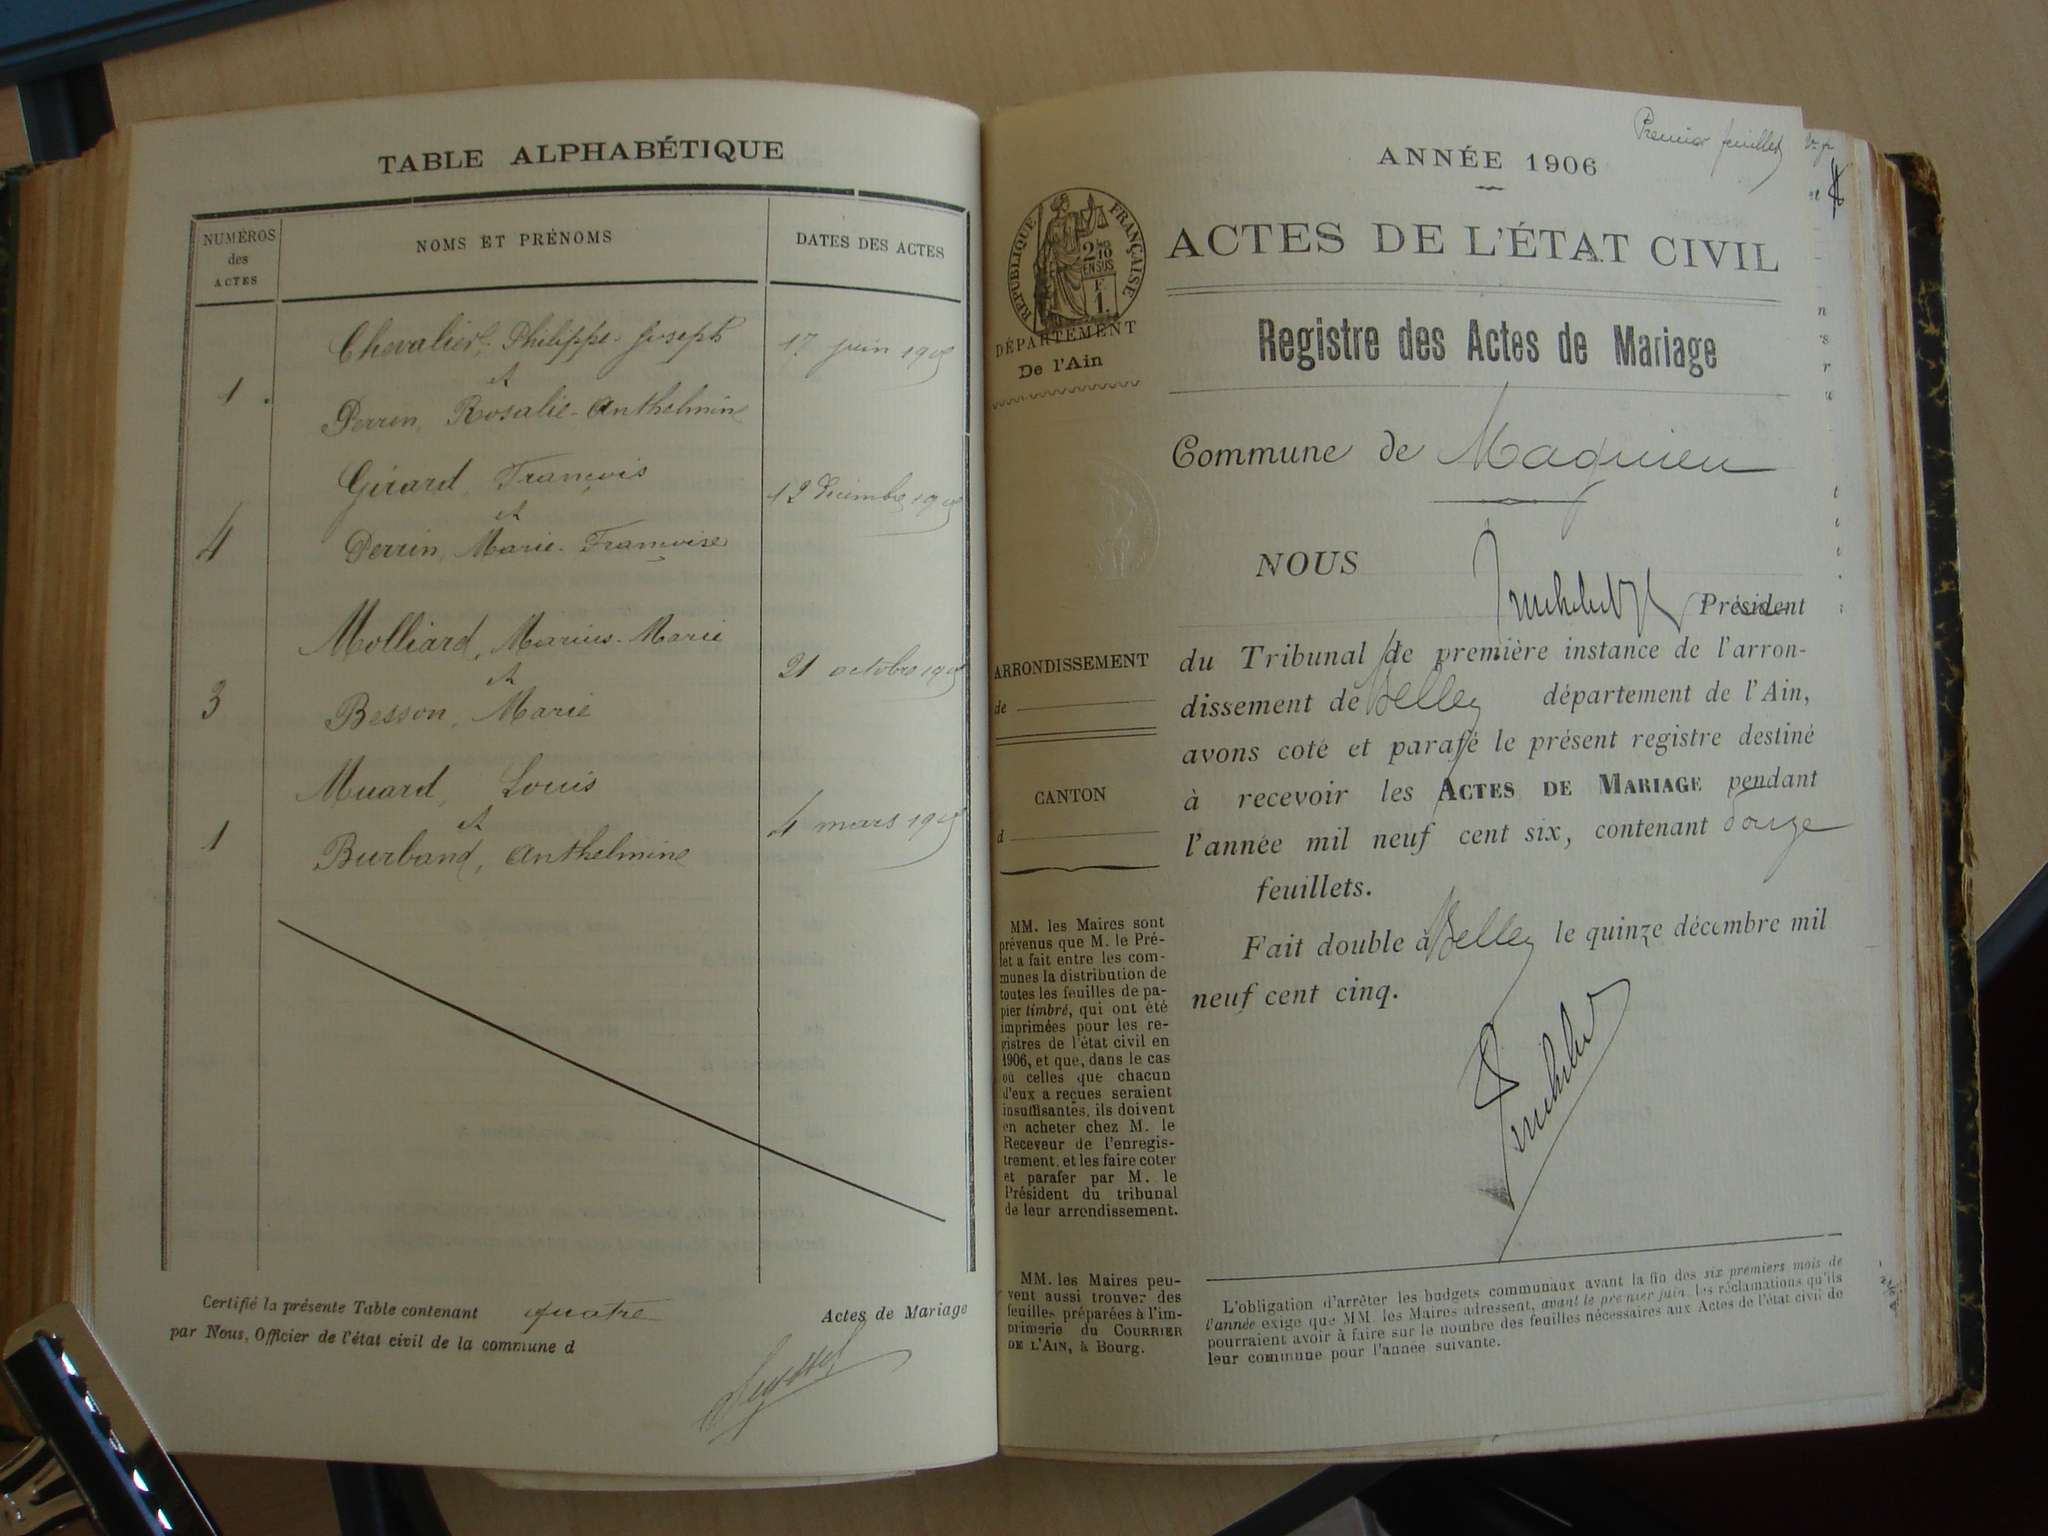 TABLE ALPHABÉTIQUE
NUMÉROS
des
ACTES
NOMS ET PRÉNOMS
DATES DES ACTES
Chevalier, Philippe-Joseph
17 juin 1905
1
et
Perrin, Rosalie-Anthelmine
Girard, François
12 décembre 1905
4
et
Perrin, Marie-Françoise
Molliard, Marius-Marie
21 octobre 1905
3
et
Besson, Marie
Muard, Louis
4 mars 1905
1
et
Burband, Anthelmine
Certifié la présente Table contenant quatre Actes de Mariage
par Nous, Officier de l'état civil de la commune d
Premier feuillet
ANNÉE 1906
RÉPUBLIQUE FRANÇAISE
2/10
EN SUS
F
1.
DÉPARTEMENT
De l'Ain
ACTES DE L'ÉTAT CIVIL
Registre des Actes de Mariage
Commune de Magnieu
NOUS
Président
du Tribunal de première instance de l'arron-
dissement de Belley département de l'Ain,
avons coté et parafé le présent registre destiné
à recevoir les ACTES DE MARIAGE pendant
l'année mil neuf cent six, contenant douze
feuillets.
Fait double à Belley le quinze décembre mil
neuf cent cinq.
ARRONDISSEMENT
de
CANTON
d
MM. les Maires sont
prévenus que M. le Pré-
fet a fait entre les com-
munes la distribution de
toutes les feuilles de pa-
pier timbré, qui ont été
imprimées pour les re-
gistres de l'état civil en
1906, et que, dans le cas
où celles que chacun
d'eux a reçues seraient
insuffisantes, ils doivent
en acheter chez M. le
Receveur de l'enregis-
trement, et les faire coter
et parafer par M. le
Président du tribunal
de leur arrondissement.
MM. les Maires peu-
vent aussi trouver des
feuilles préparées à l'im-
primerie du COURRIER
DE L'AIN, à Bourg.
L'obligation d'arrêter les budgets communaux avant la fin des six premiers mois de
l'année exige que MM. les Maires adressent, avant le premier juin, les réclamations qu'ils
pourraient avoir à faire sur le nombre des feuilles nécessaires aux Actes de l'état civil de
leur commune pour l'année suivante.